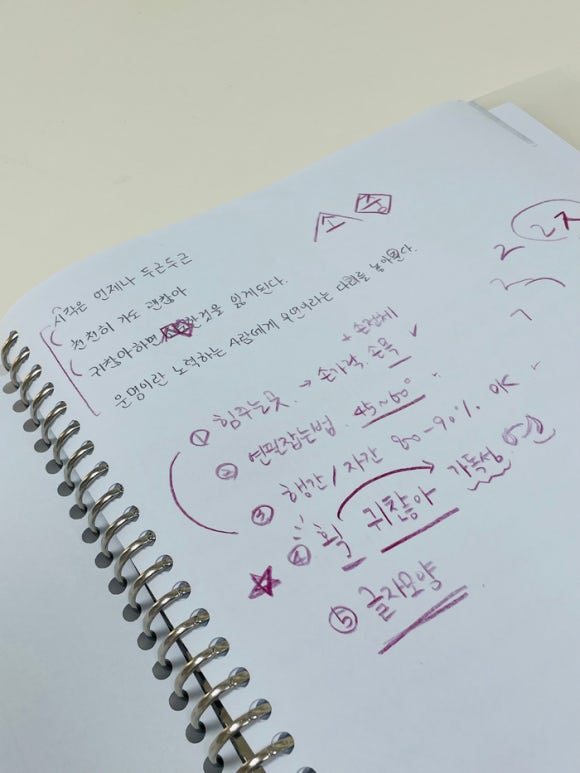 시작은 언제나 두근두근
천천히 가도 괜찮아
귀찮아하면 한것을 잃게된다.
운명이란 노력하는 사람에게 우연이라는 다리를 놓아준다.
+ 손전체
① 힘주는곳. → 손가락. 손목 ✓
② 연필잡는법. 45~60°
③ 행간/자간 80-90% OK
④ 획 귀찮아 가독성
⑤ 글자모양